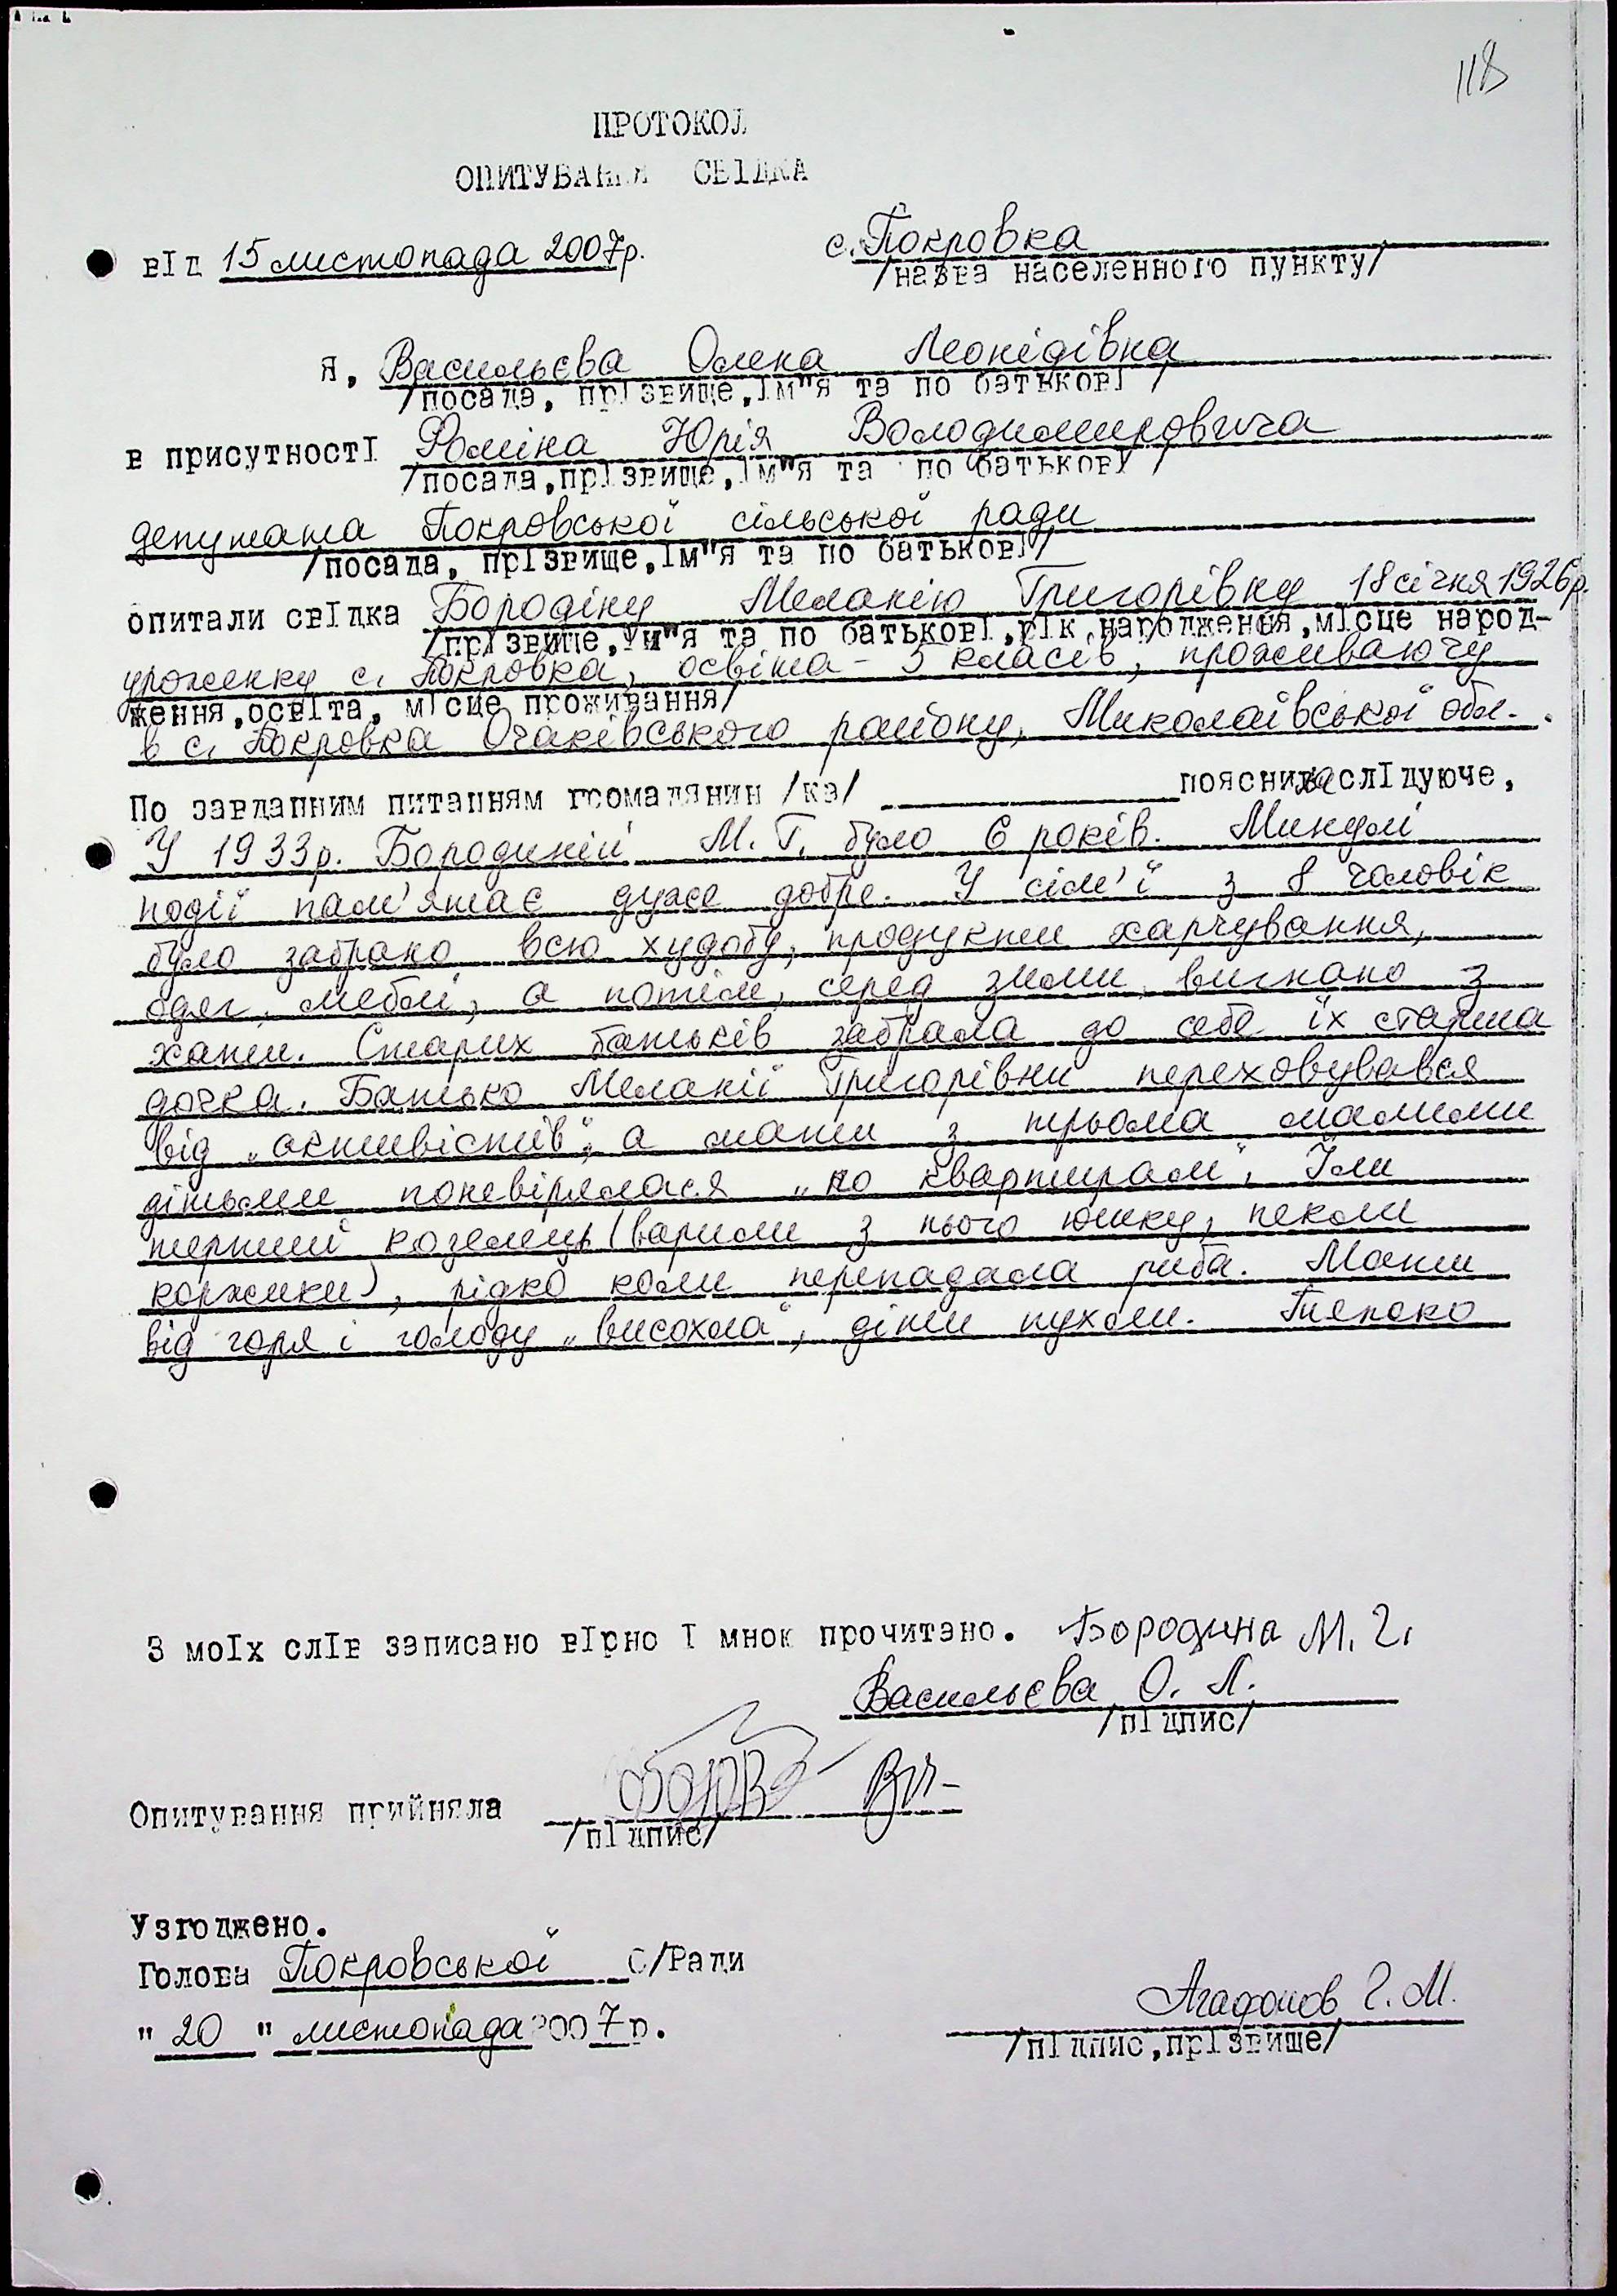 118
ПРОТОКОЛ
ОПИТУВАННЯ СВІДКА
від 15 листопада 2007р. с. Покровка
/назва населенного пункту/
я, Васильєва Олена Леонідівна
/посада, прізвище, ім"я та по батькові /
в присутності Фоміна Юрія Володимировича
/посада, прізвище, ім"я та по батькові /
депутата Покровської сільської ради
/посада, прізвище, ім"я та по батькові/
опитали свідка Бородіну Меланію Григорівну 18 січня 1926р.
/прізвище, им"я та по батькові, рік народження, місце народ-
уроженку с. Покровка, освіта - 3 класів, проживаючу
ження, освіта, місце проживання/
в с. Покровка Очаківського району, Миколаївської обл.
По завданним питанням громадянин /ка/ пояснила слідуюче,
У 1933р. Бородиній М. Г. було 6 років. Минулі
події пам'ятає дуже добре. У сім'ї з 8 чоловік
було забрано всю худобу, продукти харчування,
одяг, меблі, а потім, серед зими, вигнано з
хати. Старих батьків забрала до себе їх старша
дочка. Батько Меланії Григорівни переховувався
від „активістів", а мати з трьома малими
дітьми поневірялася „по квартирам". Їли
тертий козелець (варили з нього юшку, пекли
коржики), рідко коли перепадала риба. Мати
від горя і голоду „висохла", діти пухли. Тяжко
З моїх слів записано вірно і мною прочитано. Бородина М. Г.
Васильєва О. Л.
/підпис/
Опитування прийняла
/підпис/
Узгоджено.
Голова Покровської С/Ради
" 20 " листопада 2007р. Агафонов Г. М.
/підпис, прізвище/